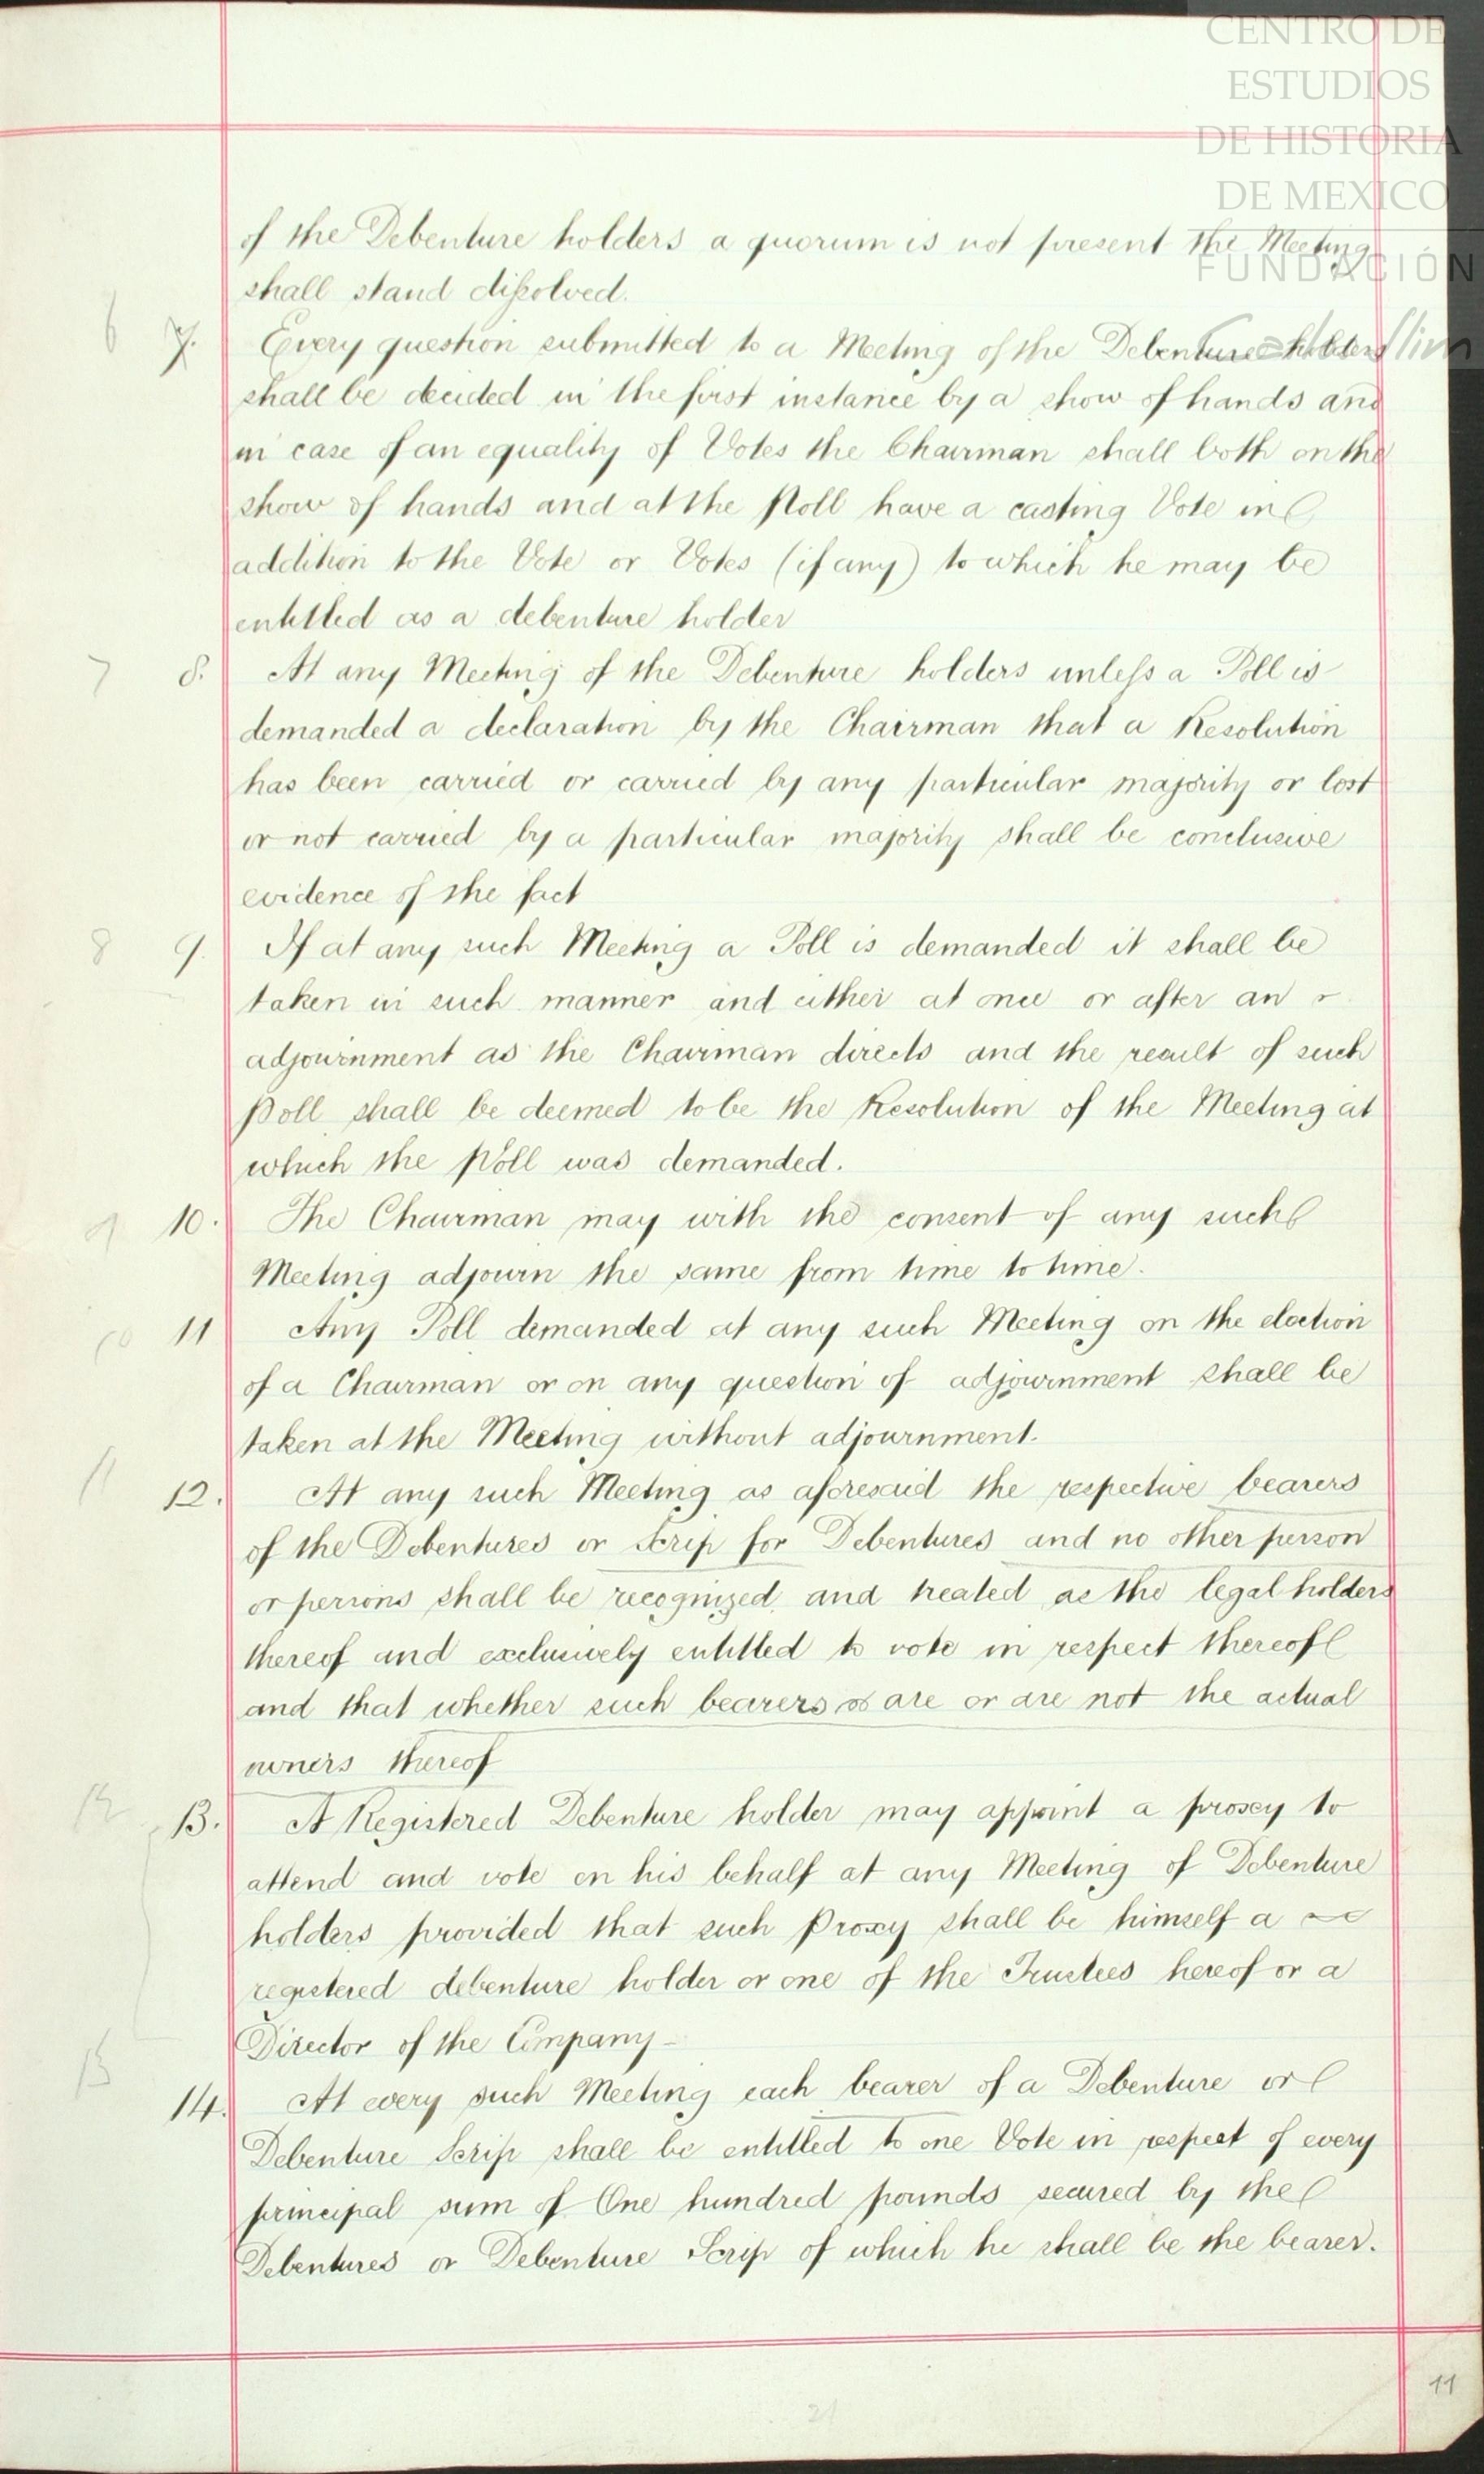 CENTRO DE
ESTUDIOS
DE HISTORIA
DE MEXICO
FUNDACIÓN
of the Debenture holders a quorum is not present the Meeting
shall stand dissolved.
6 7. Every question submitted to a Meeting of the Debenture holders
shall be decided in the first instance by a show of hands and
in case of an equality of Votes the Chairman shall both on the
show of hands and at the Poll have a casting Vote in
addition to the Vote or Votes (if any) to which he may be
entitled as a debenture holder
7 8. At any Meeting of the Debenture holders unless a Poll is
demanded a declaration by the Chairman that a Resolution
has been carried or carried by any particular majority or lost
or not carried by a particular majority shall be conclusive
evidence of the fact
8 9. If at any such Meeting a Poll is demanded it shall be
taken in such manner and either at once or after an
adjournment as the Chairman directs and the result of such
Poll shall be deemed to be the Resolution of the Meeting at
which the Poll was demanded.
9 10. The Chairman may with the consent of any such
Meeting adjourn the same from time to time.
10 11 Any Poll demanded at any such Meeting on the election
of a Chairman or on any question of adjournment shall be
taken at the Meeting without adjournment.
11 12. At any such Meeting as aforesaid the respective bearers
of the Debentures or Scrip for Debentures and no other person
or persons shall be recognized and treated as the legal holders
thereof and exclusively entitled to vote in respect thereof
and that whether such bearers are or are not the actual
owners thereof
12 13. A Registered Debenture holder may appoint a proxy to
attend and vote on his behalf at any Meeting of Debenture
holders provided that such Proxy shall be himself a
registered debenture holder or one of the Trustees hereof or a
Director of the Company-
13 14. At every such Meeting each bearer of a Debenture or
Debenture Scrip shall be entitled to one Vote in respect of every
principal sum of One hundred pounds secured by the
Debentures or Debenture Scrip of which he shall be the bearer.
11
21